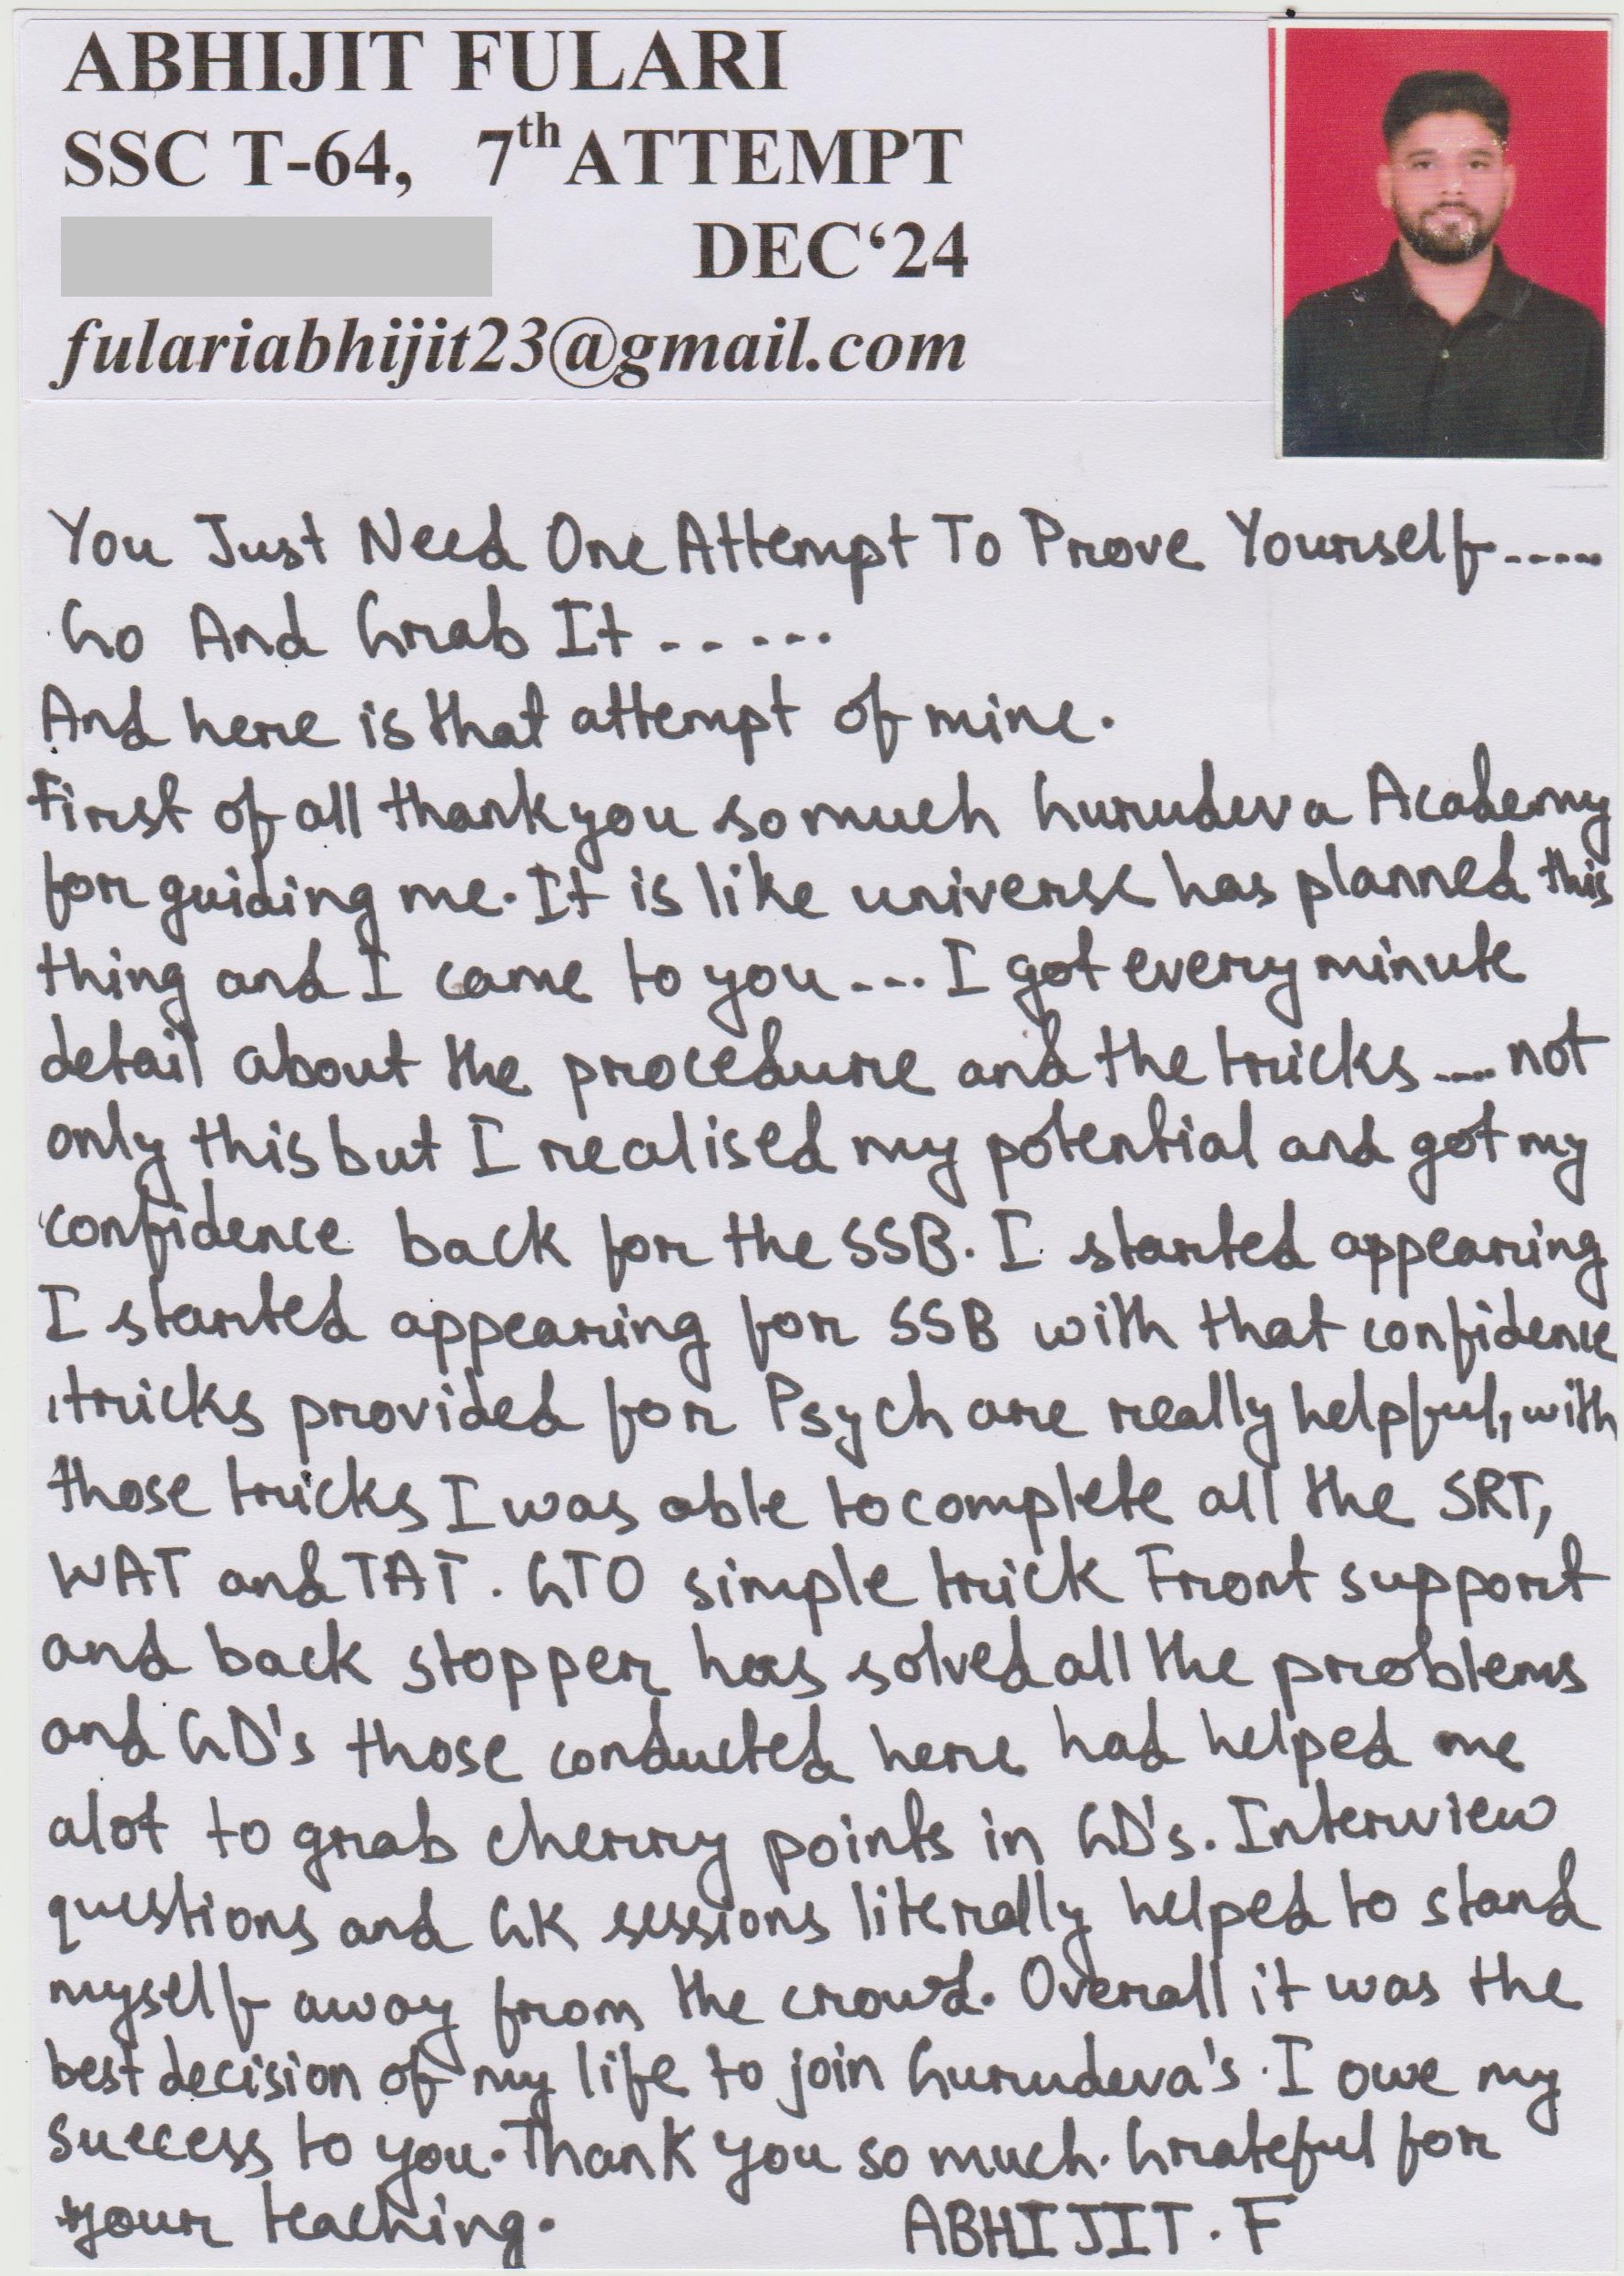 ABHIJIT FULARI
SSC T-64, 7th ATTEMPT
DEC‘24
fulariabhijit23@gmail.com
You Just Need One Attempt To Prove Yourself.....
Go And Grab It.....
And here is that attempt of mine.
First of all thank you so much Gurudeva Academy
for guiding me. It is like universe has planned this
thing and I came to you.... I got every minute
detail about the procedure and the tricks.... not
only this but I realised my potential and got my
confidence back for the SSB. I started appearing
I started appearing for SSB with that confidence
, tricks provided for Psych are really helpful, with
those tricks I was able to complete all the SRT,
WAT and TAT. GTO simple trick Front support
and back stopper has solved all the problems
and GD's those conducted here had helped me
alot to grab cherry points in GD's. Interview
questions and GK sessions literally helped to stand
myself away from the crowd. Overall it was the
best decision of my life to join Gurudeva's. I owe my
success to you. Thank you so much. Grateful for
your teaching. ABHIJIT. F